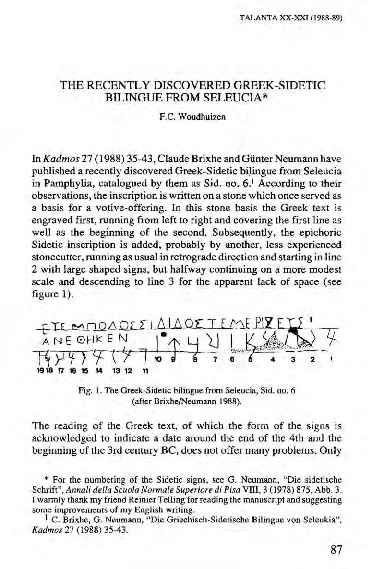 TALANTA XX-XXI (1988-89)
THE RECENTLY DISCOVERED GREEK-SIDETIC
BILINGUE FROM SELEUCIA*
F.C. Woudhuizen
In Kadmos 27 (1988) 35-43, Claude Brixhe and Günter Neumann have
published a recently discovered Greek-Sidetic bilingue from Seleucia
in Pamphylia, catalogued by them as Sid. no. 6.¹ According to their
observations, the inscription is written on a stone which once served as
a basis for a votive-offering. In this stone basis the Greek text is
engraved first, running from left to right and covering the first line as
well as the beginning of the second. Subsequently, the epichoric
Sidetic inscription is added, probably by another, less experienced
stonecutter, running as usual in retrograde direction and starting in line
2 with large shaped signs, but halfway continuing on a more modest
scale and descending to line 3 for the apparent lack of space (see
figure 1).
ΑΝΕΘΗΚΕΝ
10 9 8 7 6 5 4 3 2 1
19 18 17 16 15 14 13 12 11
Fig. 1. The Greek-Sidetic bilingue from Seleucia, Sid. no. 6
(after Brixhe/Neumann 1988).
The reading of the Greek text, of which the form of the signs is
acknowledged to indicate a date around the end of the 4th and the
beginning of the 3rd century BC, does not offer many problems. Only
* For the numbering of the Sidetic signs, see G. Neumann, "Die sidetische
Schrift", Annali della Scuola Normale Superiore di Pisa VIII, 3 (1978) 875, Abb. 3.
I warmly thank my friend Reinier Telling for reading the manuscript and suggesting
some improvements of my English writing.
¹ C. Brixhe, G. Neumann, "Die Griechisch-Sidetische Bilingue von Seleukia",
Kadmos 27 (1988) 35-43.
87